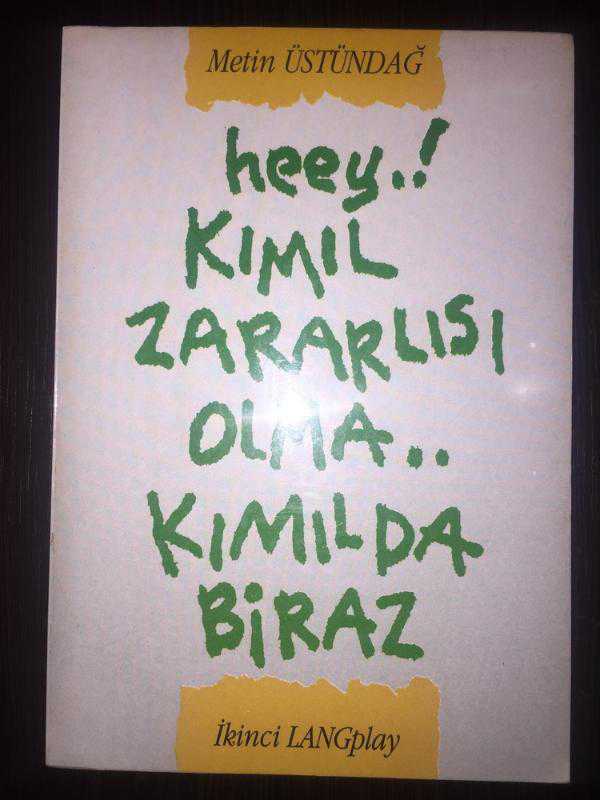 Metin ÜSTÜNDAĞ
heey..!
KIMIL
ZARARLISI
OLMA..
KIMILDA
BiRAZ
İkinci LANGplay